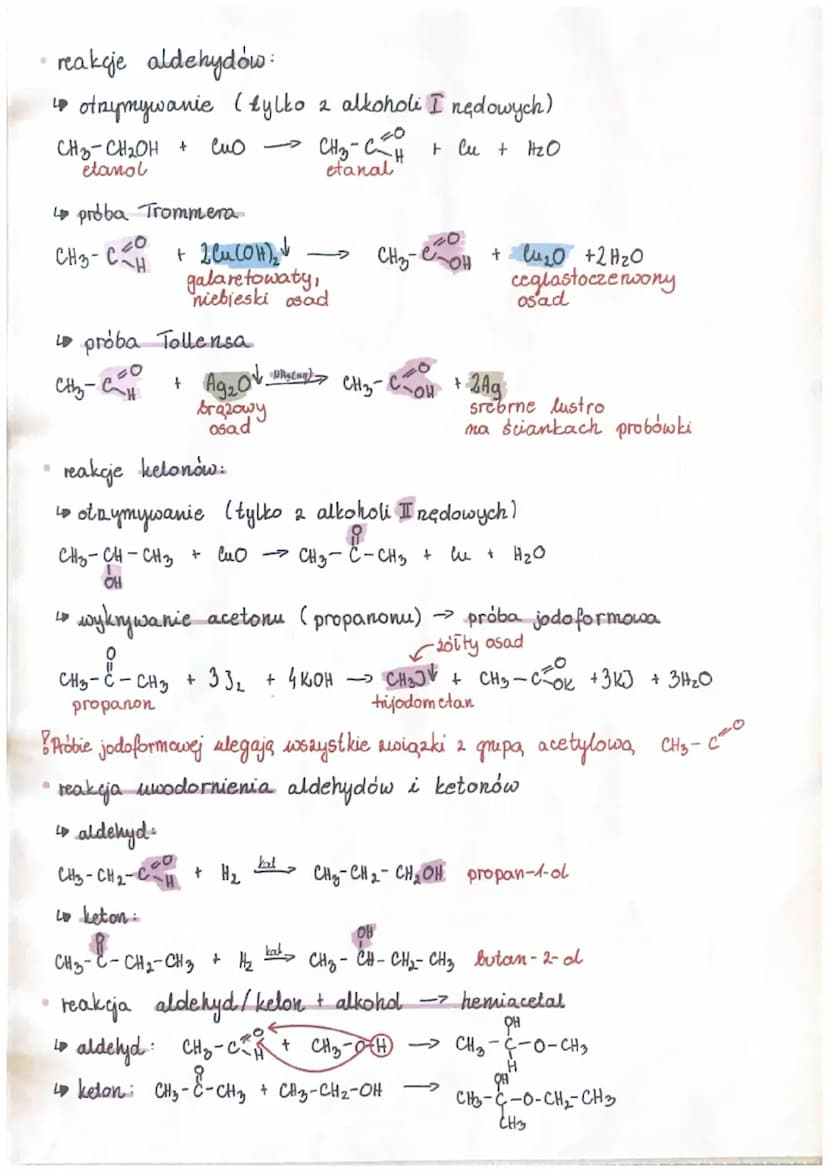 • reakcje aldehydów:
↳ otrzymywanie (tylko z alkoholi I rzędowych)
CH₃-CH₂OH + CuO → CH₃-C=O-H + Cu + H₂O
etanol etanal
↳ próba Trommera
CH₃-C=O-H + 2Cu(OH)₂↓ → CH₃-C=O-OH + Cu₂O + 2H₂O
galaretowaty, niebieski osad ceglastoczerwony osad
↳ próba Tollensa
CH₃-C=O-H + Ag₂O↓ → CH₃-C=O-OH + 2Ag
brązowy osad srebrne lustro na ściankach probówki
• reakcje ketonów:
↳ otrzymywanie (tylko z alkoholi II rzędowych)
CH₃-CH(OH)-CH₃ + CuO → CH₃-C(=O)-CH₃ + Cu + H₂O
↳ wykrywanie acetonu (propanonu) → próba jodoformowa
żółty osad
CH₃-C(=O)-CH₃ + 3J₂ + 4KOH → CH₃J↓ + CH₃-C=O-OK + 3KJ + 3H₂O
propanon trijodometan
! Próbie jodoformowej ulegają wszystkie związki z grupą acetylową CH₃-C=O
• reakcja uwodornienia aldehydów i ketonów
↳ aldehyd:
CH₃-CH₂-C=O-H + H₂ kat→ CH₃-CH₂-CH₂OH propan-1-ol
↳ keton:
CH₃-C(=O)-CH₂-CH₃ + H₂ kat→ CH₃-CH(OH)-CH₂-CH₃ butan-2-ol
• reakcja aldehyd/keton + alkohol → hemiacetal
↳ aldehyd: CH₃-C=O-H + CH₃-O-H → CH₃-C(OH)(H)-O-CH₃
↳ keton: CH₃-C(=O)-CH₃ + CH₃-CH₂-OH → CH₃-C(OH)(CH₃)-O-CH₂-CH₃